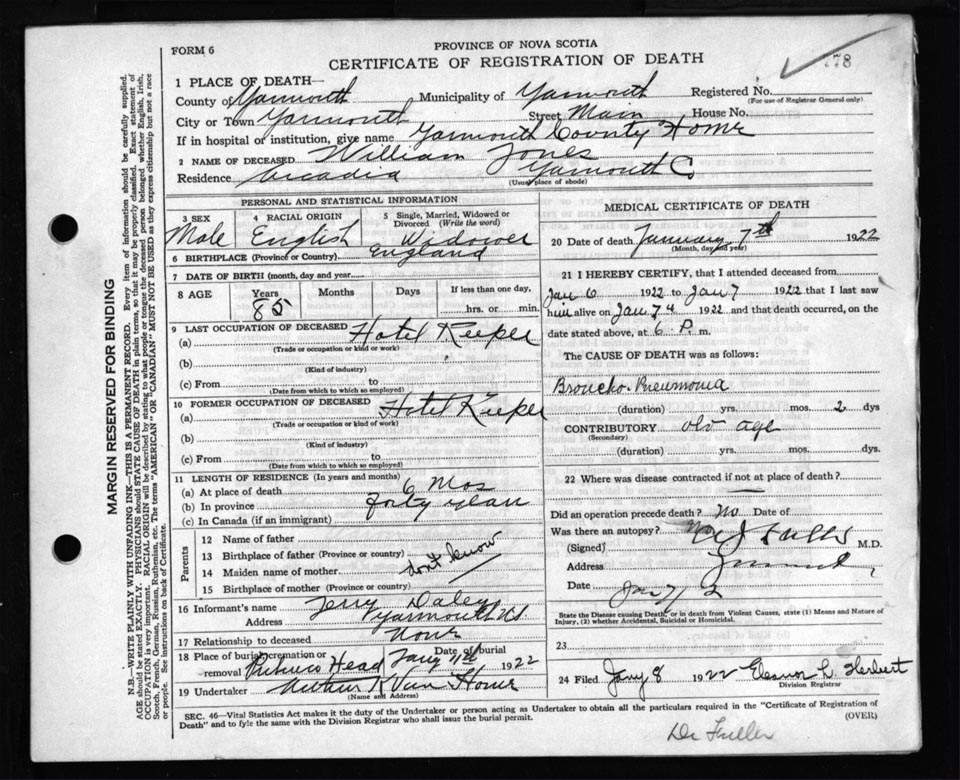 FORM 6
PROVINCE OF NOVA SCOTIA
CERTIFICATE OF REGISTRATION OF DEATH
778
1 PLACE OF DEATH—
County of Yarmouth Municipality of Yarmouth Registered No.
(For use of Registrar General only)
City or Town Yarmouth Street Main House No.
If in hospital or institution, give name Yarmouth County Home
2 NAME OF DECEASED William Jones
Residence Arcadia Yarmouth Co
(Usual place of abode)
PERSONAL AND STATISTICAL INFORMATION
3 SEX Male
4 RACIAL ORIGIN English
5 Single, Married, Widowed or Divorced (Write the word) Widower
6 BIRTHPLACE (Province or Country) England
7 DATE OF BIRTH (month, day and year)
8 AGE Years 85 Months Days If less than one day, hrs. or min.
9 LAST OCCUPATION OF DECEASED
(a) Hotel Keeper
(Trade or occupation or kind of work)
(b)
(Kind of industry)
(c) From to
(Date from which to which so employed)
10 FORMER OCCUPATION OF DECEASED
(a) Hotel Keeper
(Trade or occupation or kind of work)
(b)
(Kind of industry)
(c) From to
(Date from which to which so employed)
11 LENGTH OF RESIDENCE (In years and months)
(a) At place of death 6 Mos
(b) In province forty years
(c) In Canada (if an immigrant)
Parents
12 Name of father
13 Birthplace of father (Province or country)
14 Maiden name of mother
15 Birthplace of mother (Province or country)
don't know
16 Informant's name Jerry Daley
Address Yarmouth NS
17 Relationship to deceased None
18 Place of burial, cremation or removal Head Date of burial Jany 1922
19 Undertaker Van Horne
(Name and Address)
MEDICAL CERTIFICATE OF DEATH
20 Date of death January 7th 1922
(Month, day and year)
21 I HEREBY CERTIFY, that I attended deceased from
Jan 6 1922 to Jan 7 1922 that I last saw
him alive on Jan 7 1922 and that death occurred, on the
date stated above, at 6 P. m.
The CAUSE OF DEATH was as follows:
Broncho-Pneumonia
(duration) yrs. mos. 2 dys
CONTRIBUTORY old age
(Secondary)
(duration) yrs. mos. dys.
22 Where was disease contracted if not at place of death?
Did an operation precede death? No Date of
Was there an autopsy? No
(Signed) M.D.
Address
Date Jan 7/
State the Disease causing Death, or in death from Violent Causes, state (1) Means and Nature of
Injury, (2) whether Accidental, Suicidal or Homicidal.
23
24 Filed Jany 8 1922 Herbert
Division Registrar
SEC. 46—Vital Statistics Act makes it the duty of the Undertaker or person acting as Undertaker to obtain all the particulars required in the "Certificate of Registration of
Death" and to fyle the same with the Division Registrar who shall issue the burial permit. (OVER)
Dr Fuller
MARGIN RESERVED FOR BINDING
N.B.—WRITE PLAINLY WITH UNFADING INK—THIS IS A PERMANENT RECORD. Every item of information should be carefully supplied.
AGE should be stated EXACTLY. PHYSICIANS should STATE CAUSE OF DEATH in plain terms, so that it may be properly classified. Exact statement of
OCCUPATION is very important. RACIAL ORIGIN will be described by stating to what people or tongue the deceased person belonged whether English, Irish,
Scotch, French, German, Russian, Ruthenian, etc. The terms "AMERICAN" OR "CANADIAN" MUST NOT BE USED as they express citizenship but not a race
or people. See instructions on back of Certificate.